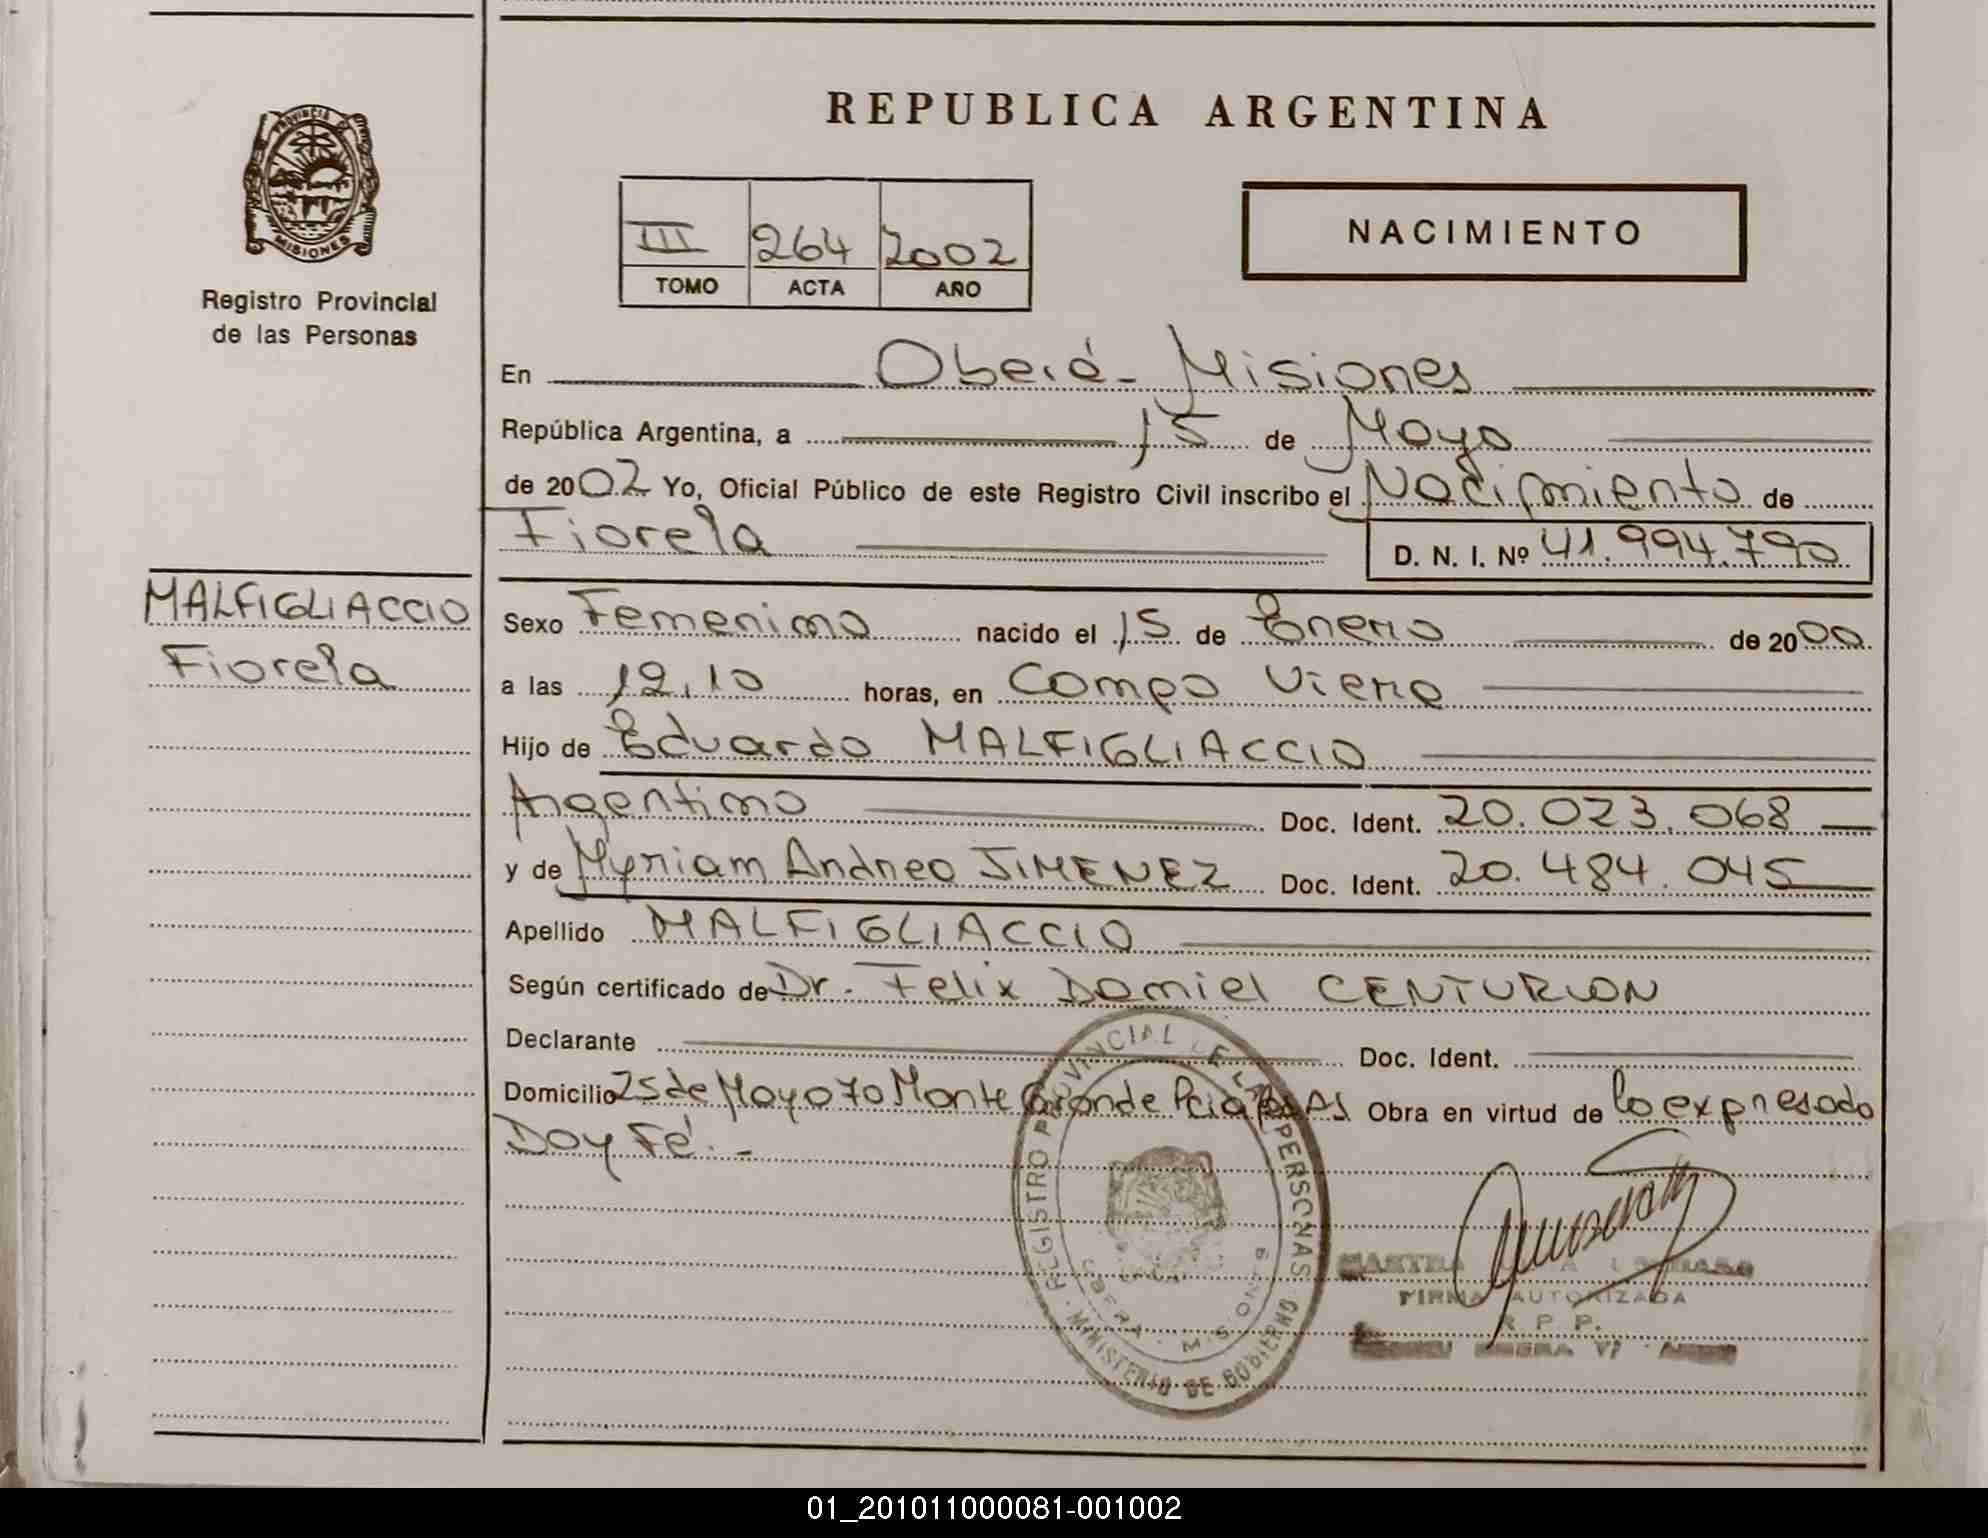 PROVINCIA DE
MISIONES
Registro Provincial
de las Personas
REPUBLICA ARGENTINA
III 264 2002
TOMO ACTA AÑO
NACIMIENTO
En Oberá - Misiones
República Argentina, a 15 de Mayo
de 2002 Yo, Oficial Público de este Registro Civil inscribo el Nacimiento de
Fiorela
D. N. I. Nº 41.994.790
MALFIGLIACCIO
Fiorela
Sexo Femenino nacido el 15 de Enero de 2000
a las 12,10 horas, en Campo Viera
Hijo de Eduardo MALFIGLIACCIO
Argentino Doc. Ident. 20.023.068
y de Myriam Andrea JIMENEZ Doc. Ident. 20.484.045
Apellido MALFIGLIACCIO
Según certificado de Dr. Felix Daniel CENTURION
Declarante Doc. Ident.
Domicilio 25 de Mayo 70 Monte Grande Pcia Bs As Obra en virtud de lo expresado
Doy Fé.-
REGISTRO PROVINCIAL DE LAS PERSONAS
MINISTERIO DE GOBIERNO
OBERA - MISIONES
FIRMA AUTORIZADA
R P P.
01_201011000081-001002